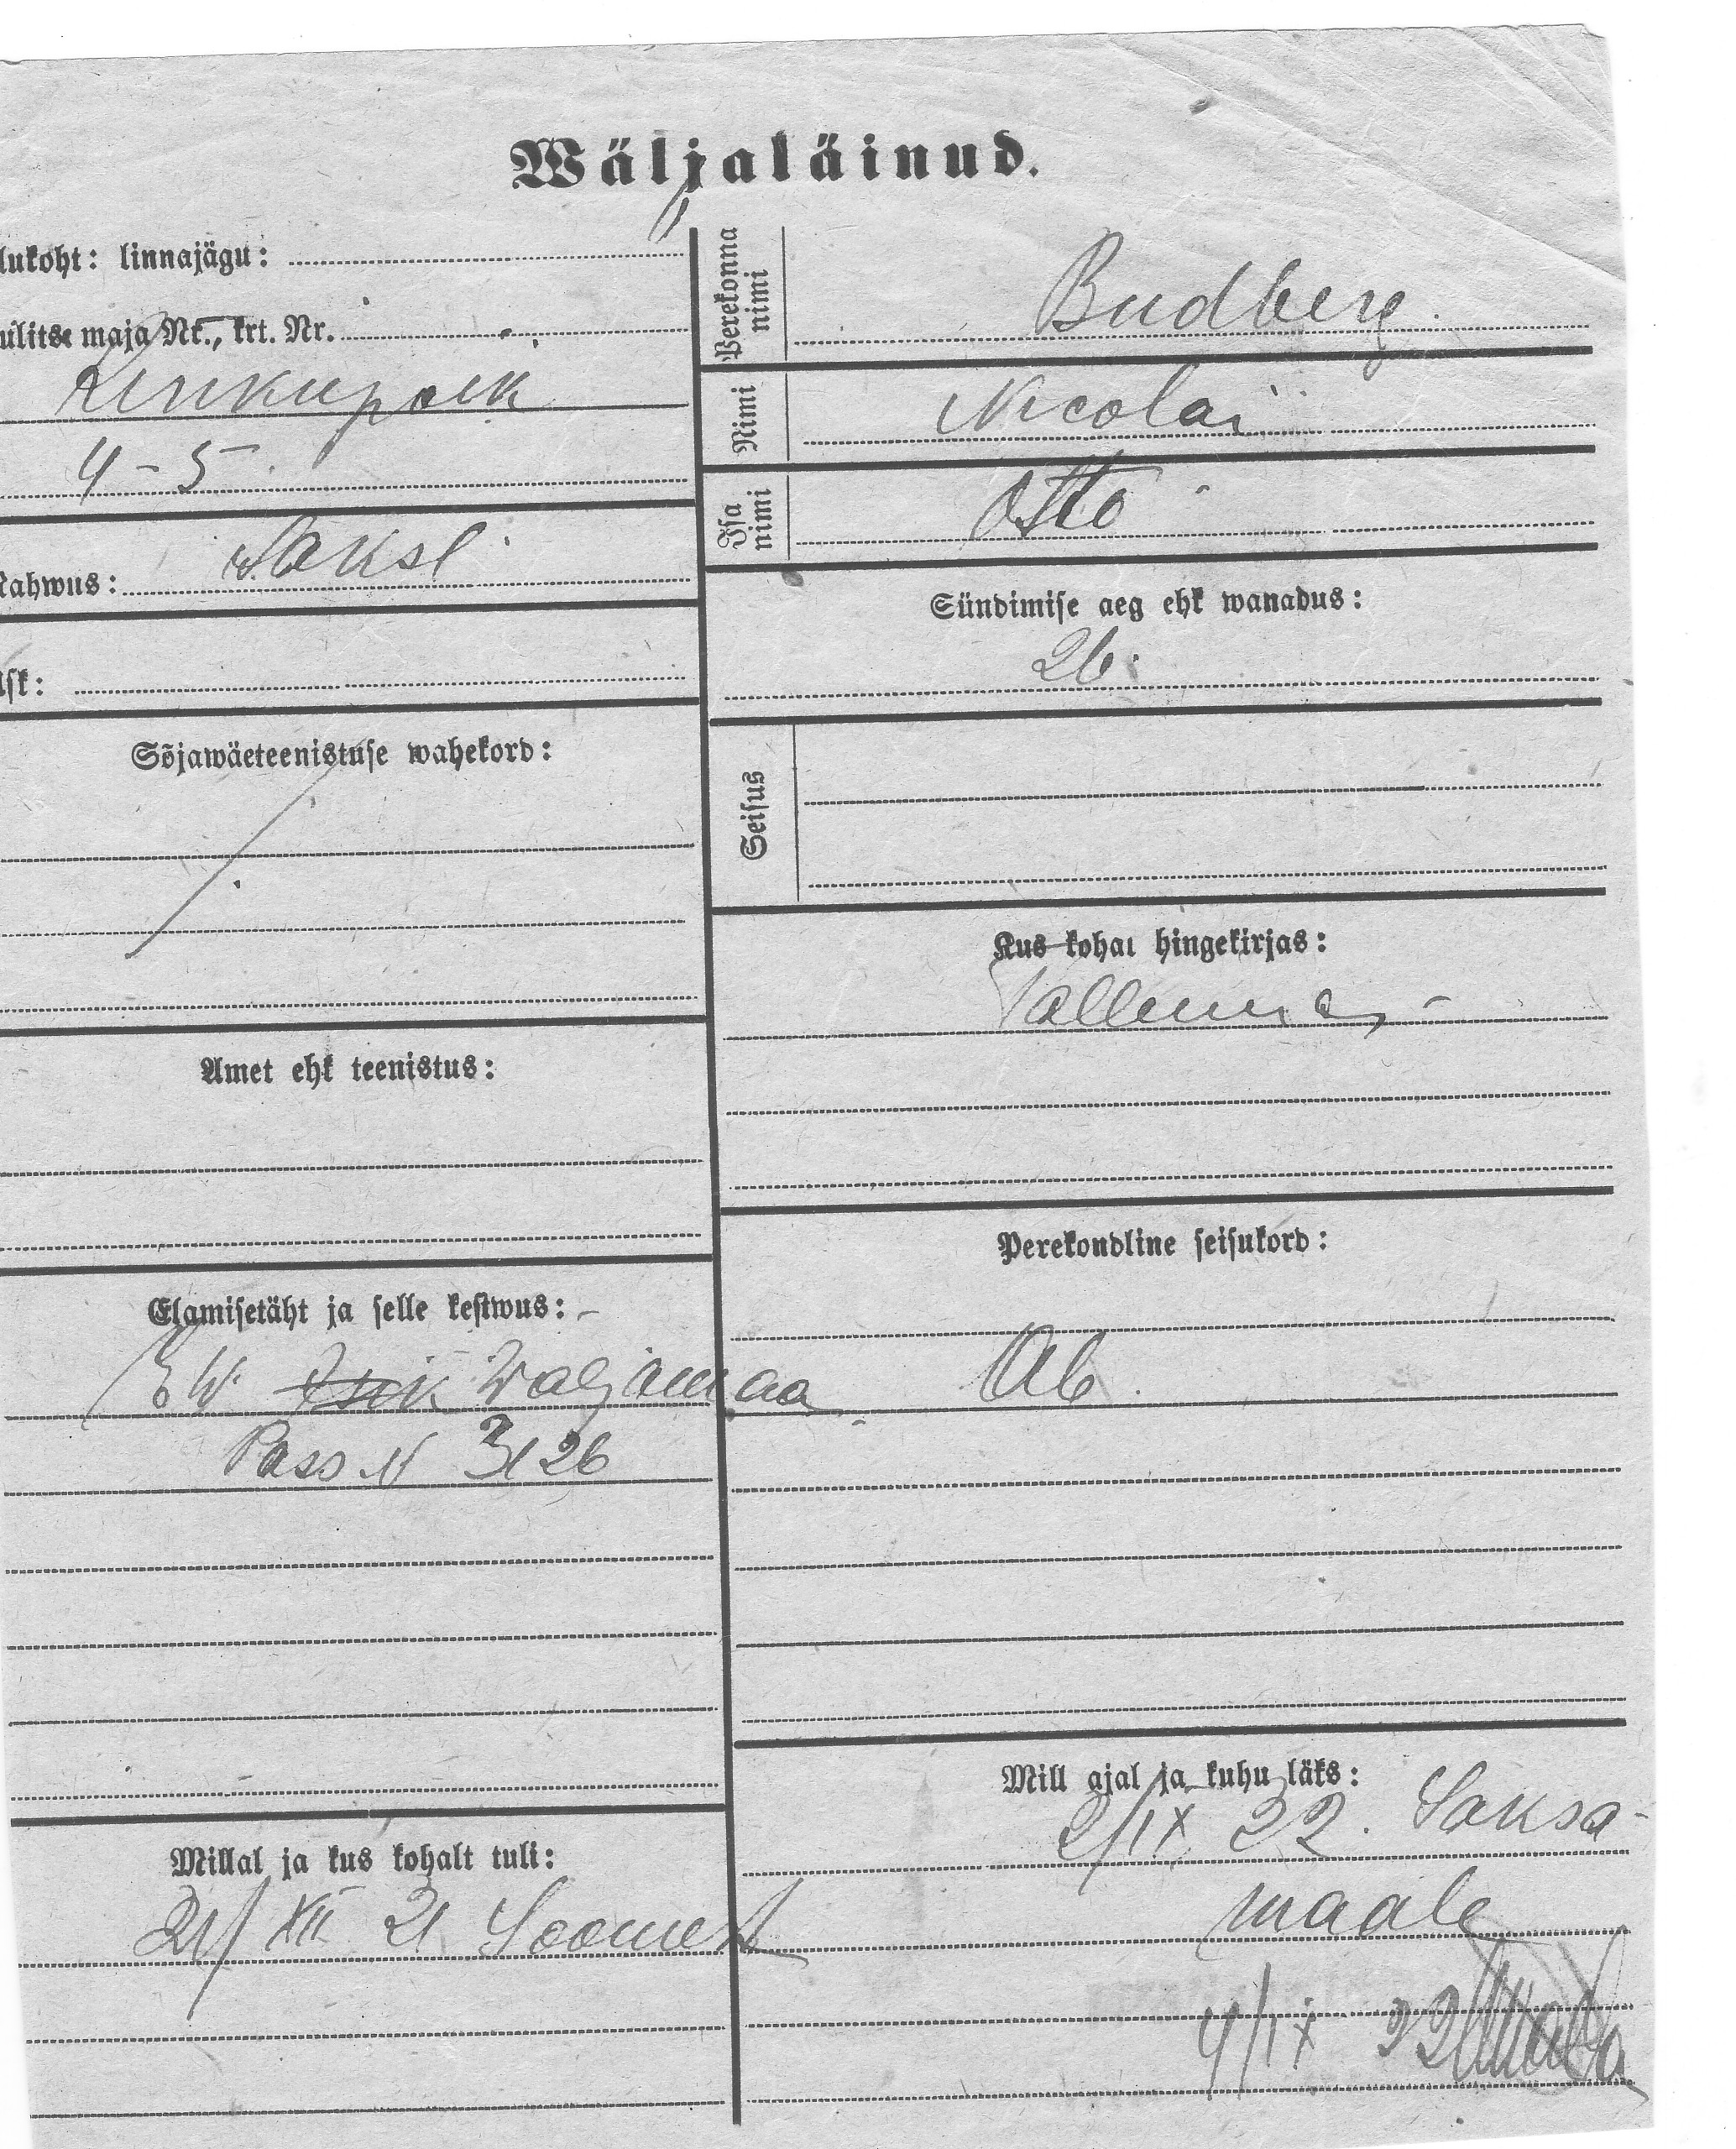 Wäljaläinud.
lukoht: linnajägu:
ulitse maja Nr., krt. Nr.
4-5
Saksl
Rahwus:
Usk:
Sõjawäeteenistuse wahekord:
Amet ehk teenistus:
Elamisetäht ja selle kestwus:
EW Waljamaa
Pass N 3126
Millal ja kus kohalt tuli:
21/XII 21 Soomest
Perekonna nimi
Budberg
Nimi
Nicolai
Isa nimi
Otto
Sündimise aeg ehk wanadus:
26.
Seisus
Kus kohal hingekirjas:
Perekondline seisukord:
Ab.
Mill ajal ja kuhu läks:
2/IX 22. Saksa-
maale
4/IX 22